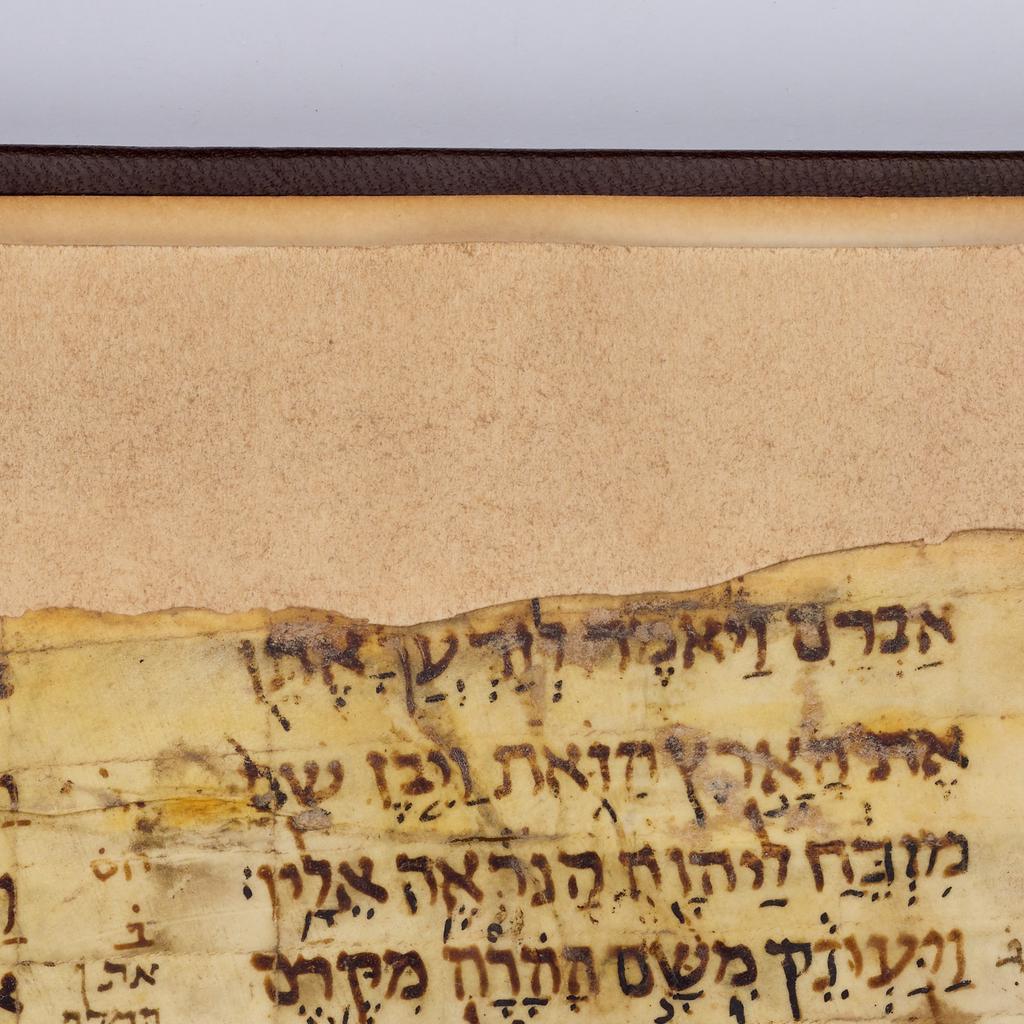 אַבְרָם וַיֹּאמֶר לְזַרְעֲךָ אֶתֵּן
אֶת הָאָרֶץ הַזֹּאת וַיִּבֶן שָׁם
מִזְבֵּחַ לַיהוָה הַנִּרְאֶה אֵלָיו׃
וַיַּעְתֵּק מִשָּׁם הָהָרָה מִקֶּדֶם
חס
ב
את